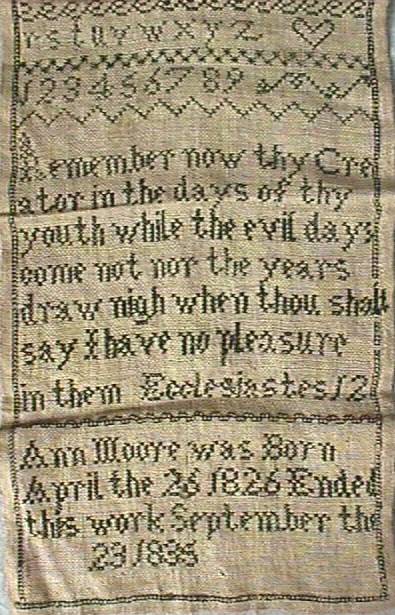 rstuvwxyz
123456789
Remember now thy Cre
ator in the days of thy
youth while the evil days
come not nor the years
draw nigh when thou shalt
say I have no pleasure
in them Ecclesiastes 12
Ann Moore was Born
April the 26 1826 Ended
this work September the
23 1835